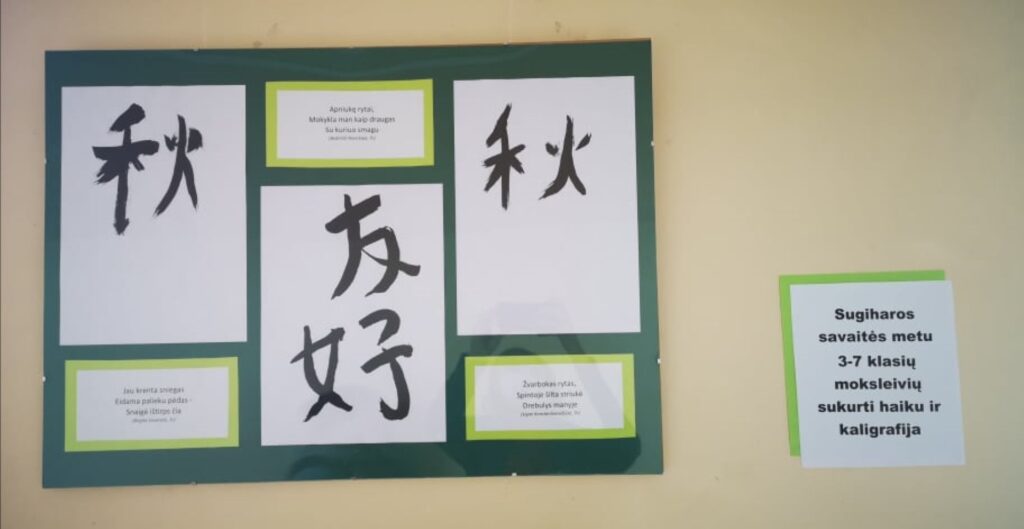 秋
Apniukę rytai,
Mokykla man kaip draugas
Su kuriuo smagu
秋
友
好
Jau krenta sniegas
Eidama palieku pėdas -
Snaigė ištirps čia
Žvarbokas rytas,
Spintoje šilta striukė
Drebulys manyje
Sugiharos
savaitės metu
3-7 klasių
moksleivių
sukurti haiku ir
kaligrafija